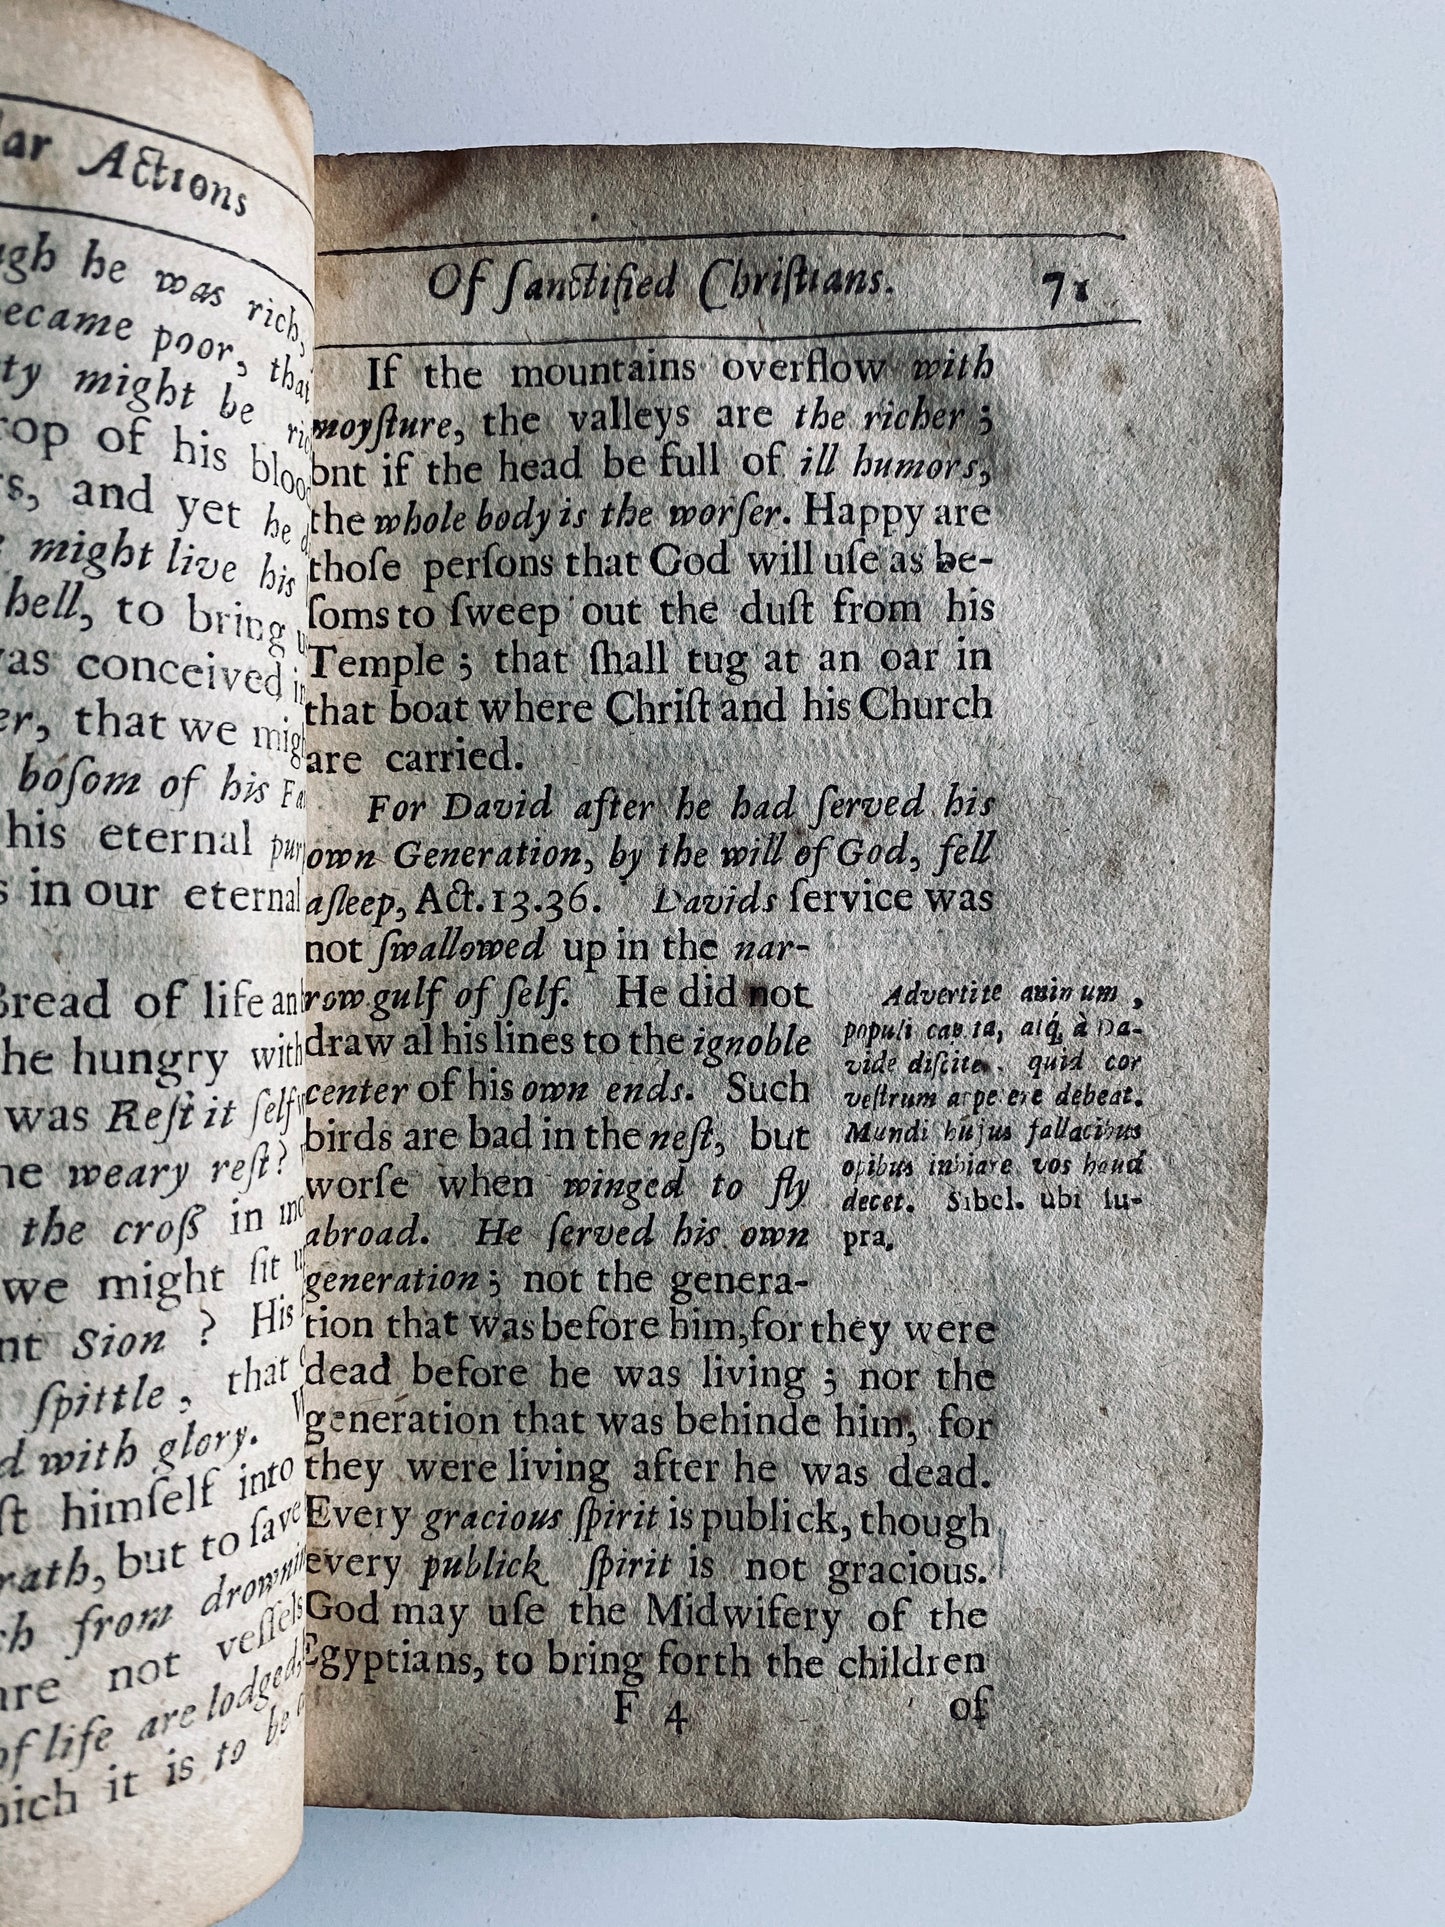 lar Actions
ugh he was rich,
became poor, that
ty might be
rop of his blood
s, and yet he
might live his
hell, to bring
was conceived
er, that we
boſom of his
his eternal
s in our eternal
Bread of life
he hungry with
was Reſt it ſelf
he weary reſt?
the croſs in
we might ſit
nt Sion? His
ſpittle, that
d with glory.
ſt himſelf into
rath, but to ſave
ch from
are not veſſels
of life are lodged,
hich it is to be
Of ſanctified Chriſtians. 71
If the mountains overflow with
moyſture, the valleys are the richer;
bnt if the head be full of ill humors,
the whole body is the worſer. Happy are
thoſe perſons that God will uſe as be-
ſoms to ſweep out the duſt from his
Temple; that ſhall tug at an oar in
that boat where Chriſt and his Church
are carried.
For David after he had ſerved his
own Generation, by the will of God, fell
aſleep, Act. 13.36. Davids ſervice was
not ſwallowed up in the nar-
row gulf of ſelf. He did not
draw al his lines to the ignoble
center of his own ends. Such
birds are bad in the neſt, but
worſe when winged to fly
abroad. He ſerved his own
generation; not the genera-
tion that was before him, for they were
dead before he was living; nor the
generation that was behinde him, for
they were living after he was dead.
Every gracious ſpirit is publick, though
every publick ſpirit is not gracious.
God may uſe the Midwifery of the
Egyptians, to bring forth the children
F 4 of
Advertite animum,
populi capita, atq́; à Da-
vide diſcite, quid cor
veſtrum appetere debeat.
Mundi hujus fallacibus
opibus inhiare vos haud
decet. Sibel. ubi ſu-
pra.